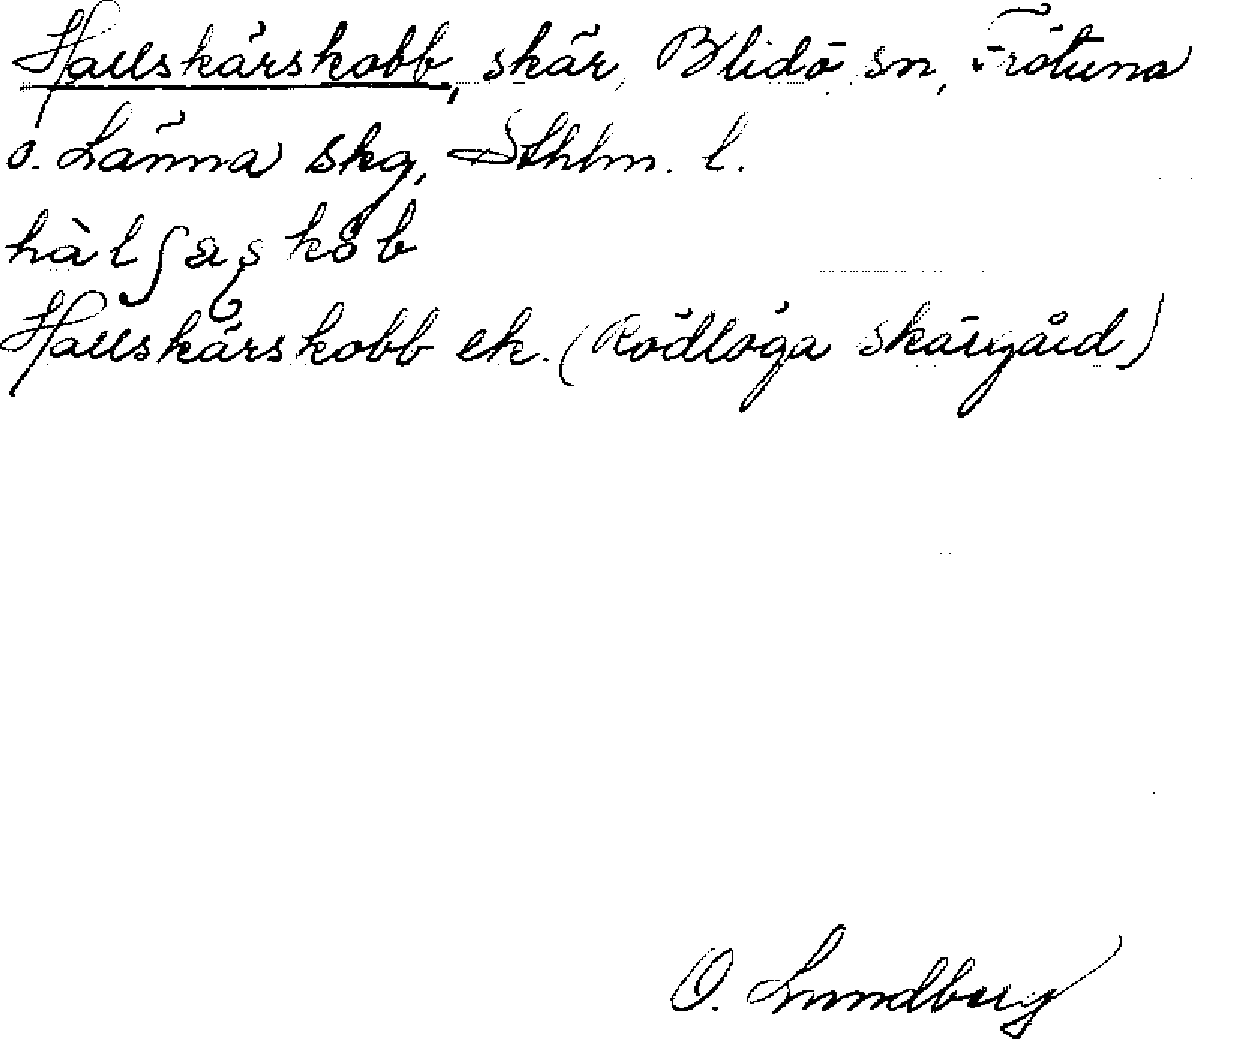 Hallskärskobb, skär, Blidö sn, Frötuna
o. Länna skg, Sthlm. l.
hàlʃæʂkob
Hallskärskobb ek. (Rödlöga skärgård)
O. Lundberg